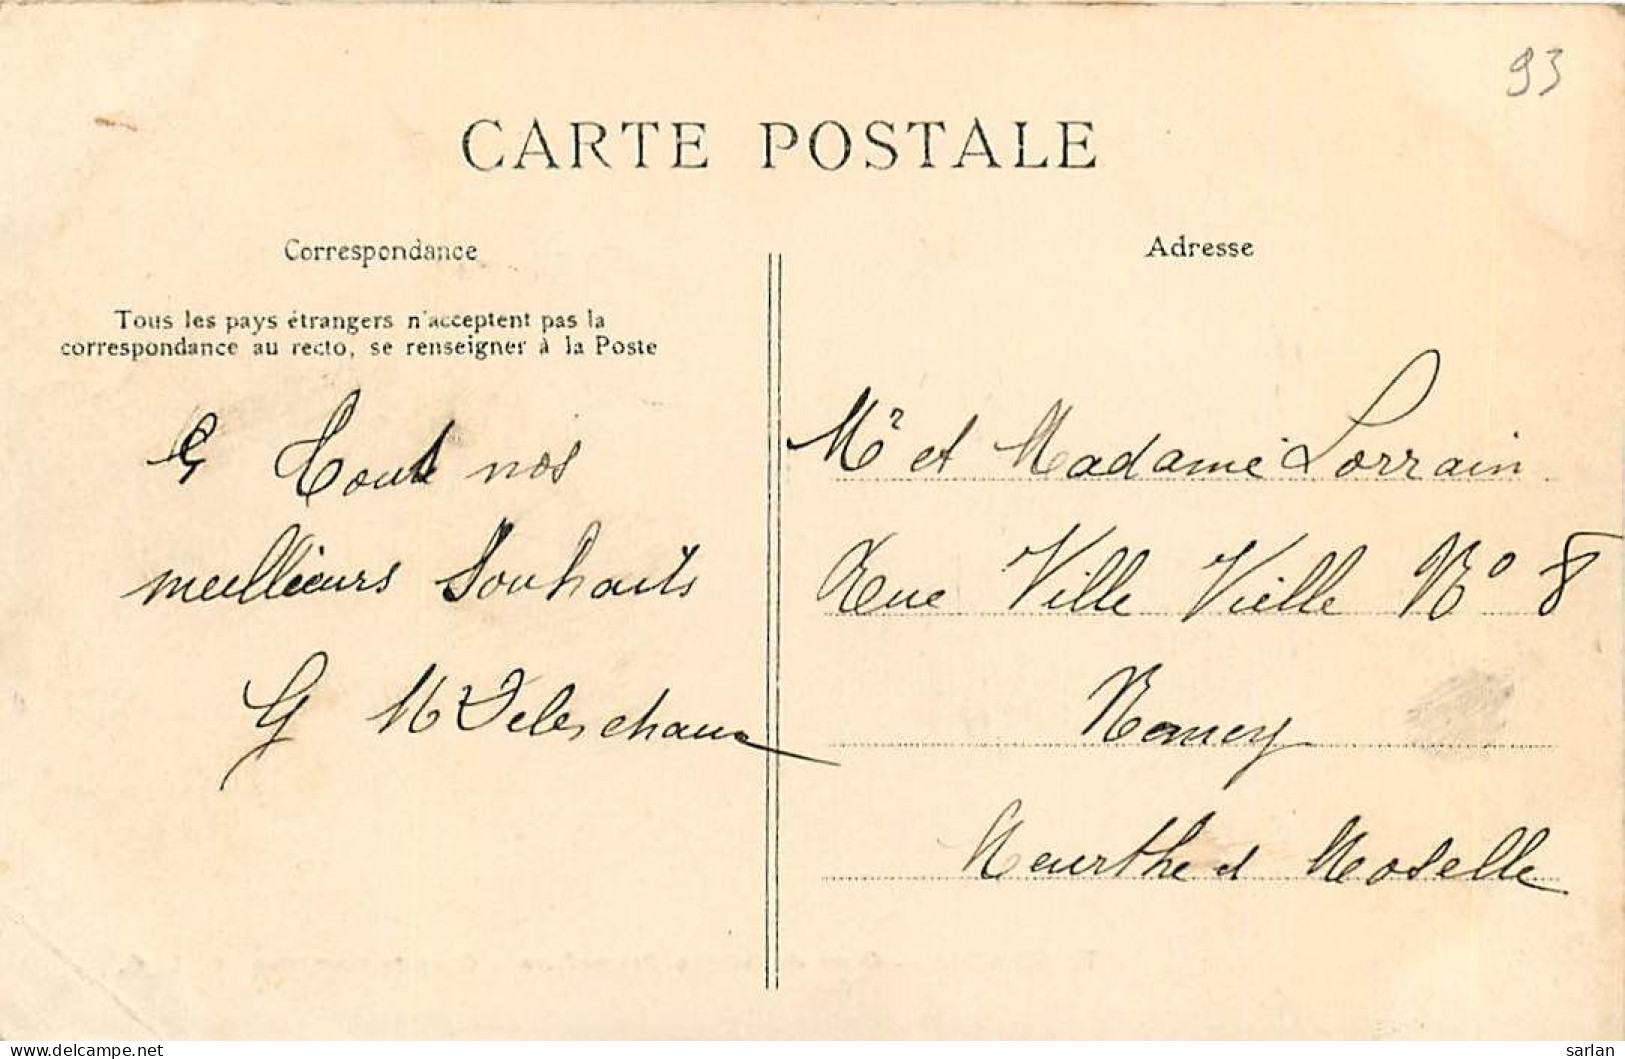 93
CARTE POSTALE
Correspondance
Tous les pays étrangers n'acceptent pas la
correspondance au recto, se renseigner à la Poste
nos
meilleurs Souhaits
G M
Adresse
Mr et Madame Lorrain
Rue Ville Vielle No 8
Nancy
Meurthe et Moselle
www.delcampe.net
sarlan